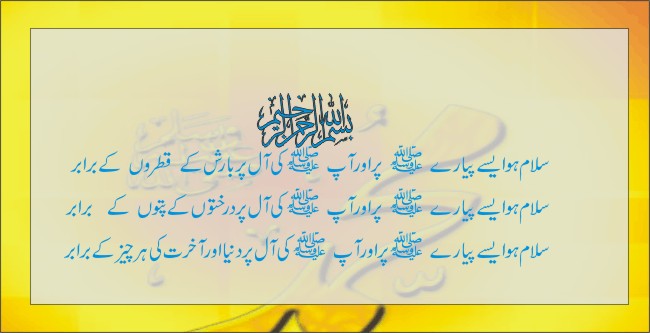 بسم الله الرحمن الرحيم
سلام ہو ایسے پیارے ﷺ پر اور آپ ﷺ کی آل پر بارش کے قطروں کے برابر
سلام ہو ایسے پیارے ﷺ پر اور آپ ﷺ کی آل پر درختوں کے پتوں کے برابر
سلام ہو ایسے پیارے ﷺ پر اور آپ ﷺ کی آل پر دنیا اور آخرت کی ہر چیز کے برابر